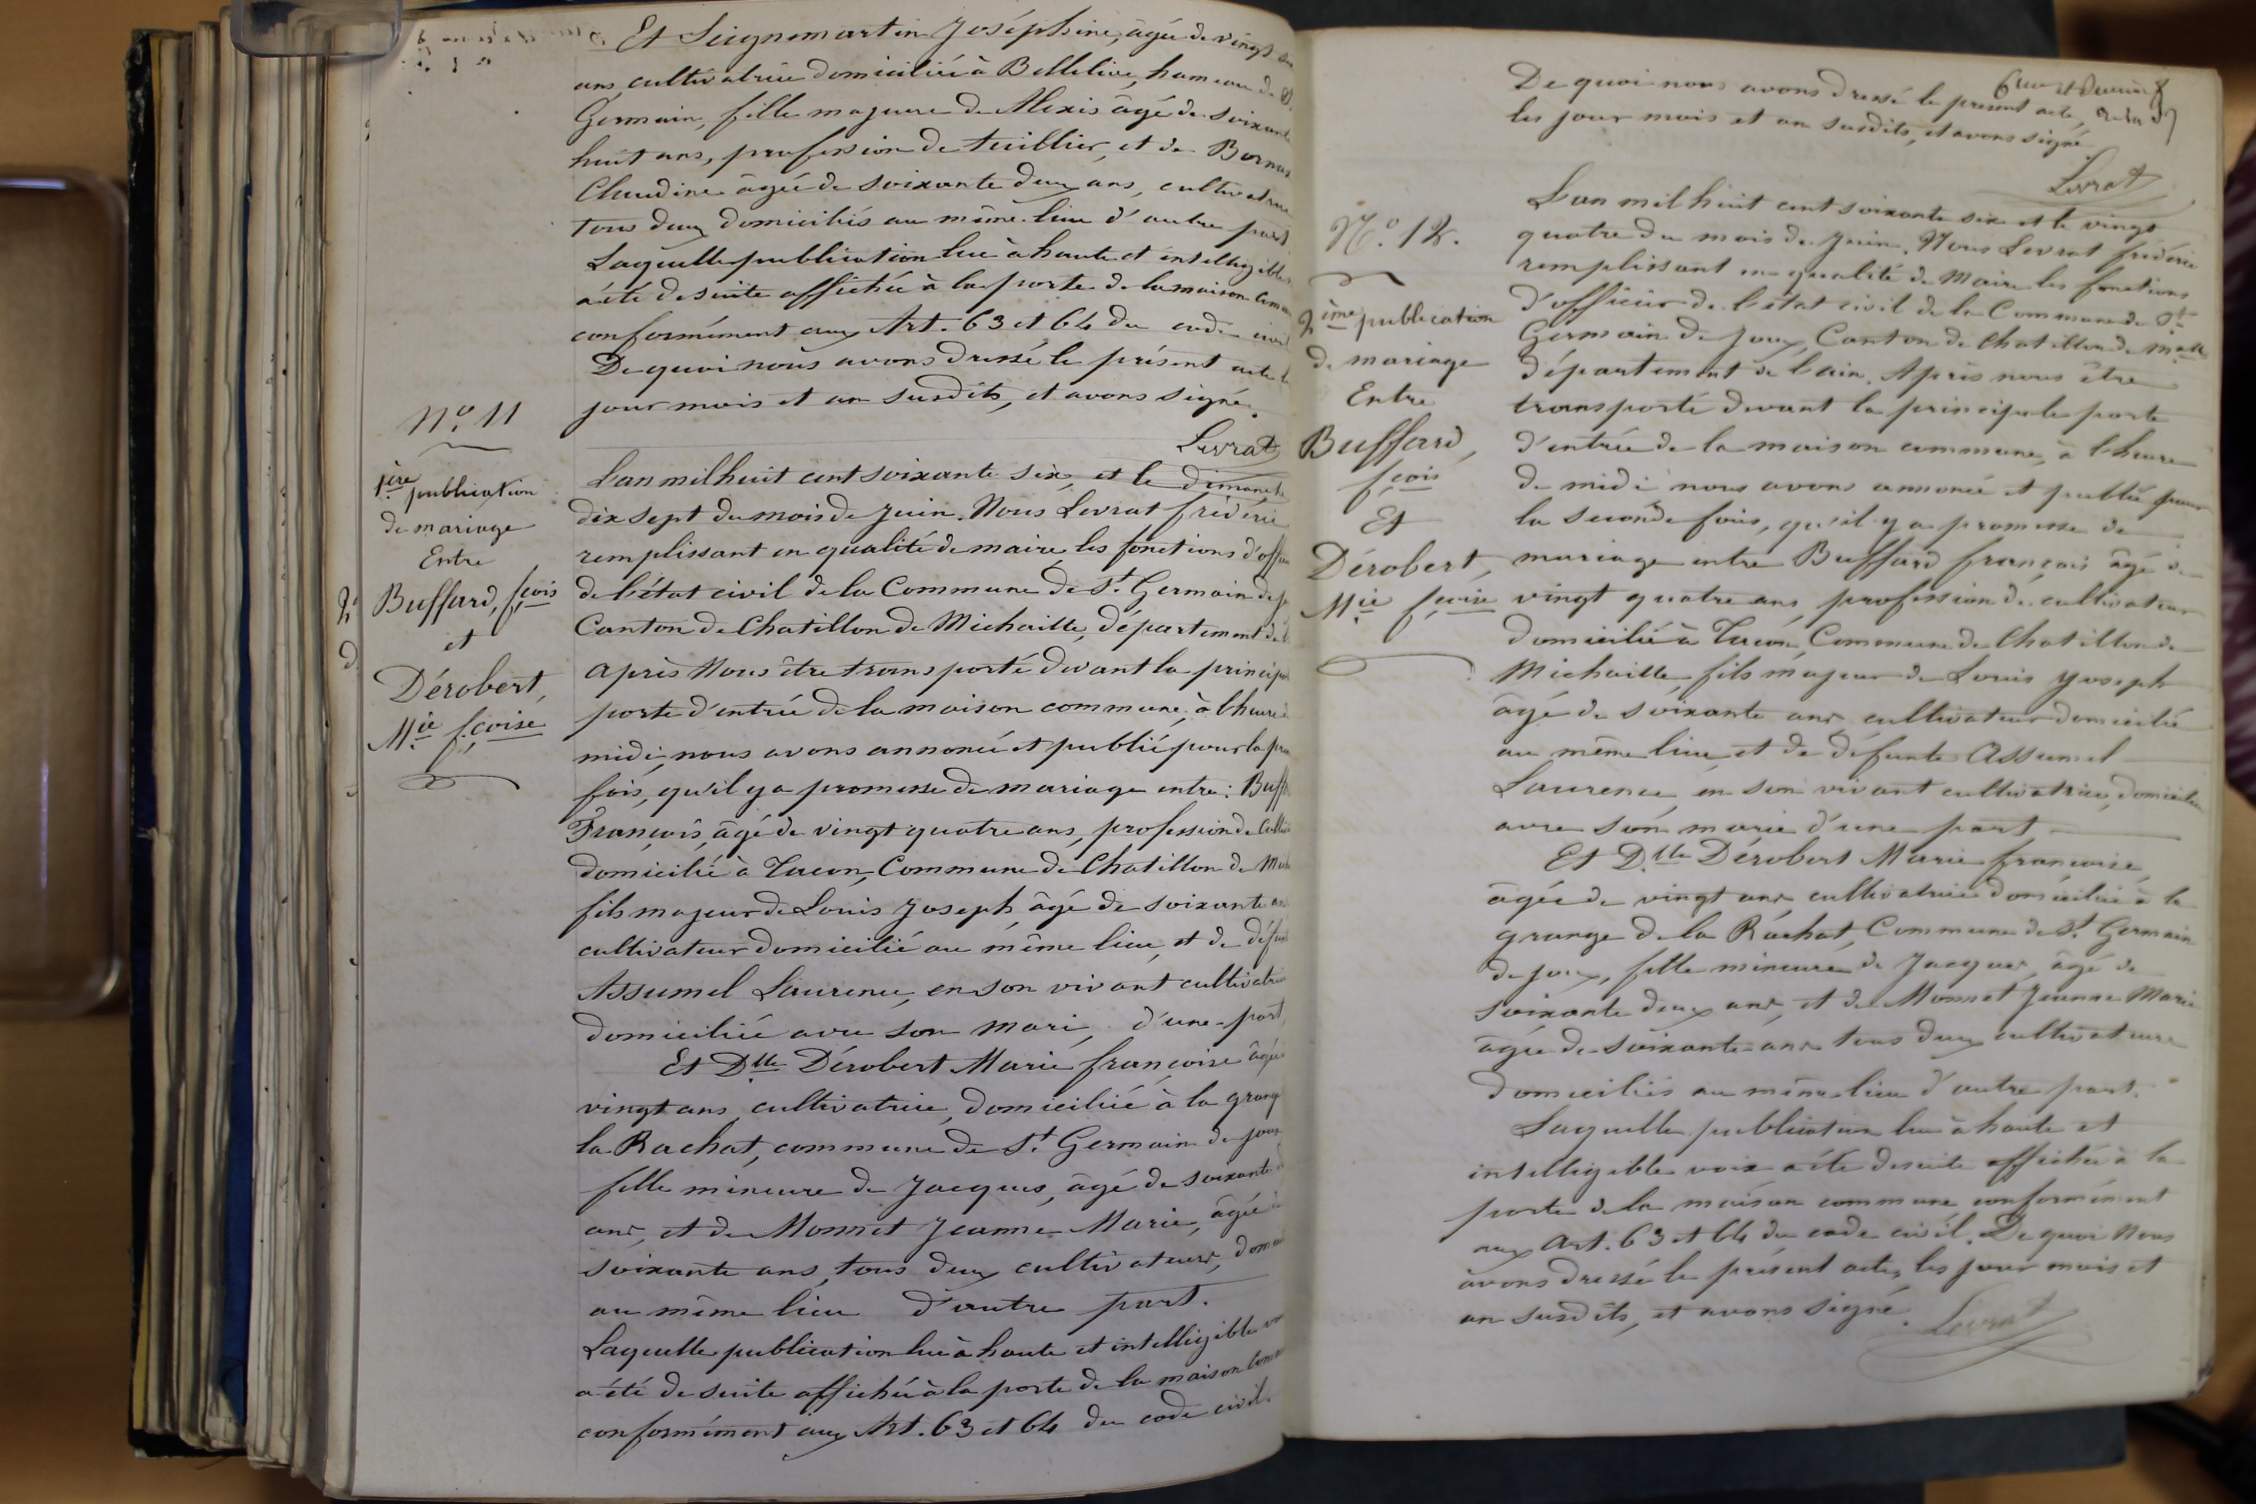 Et Seignemartin Joséphine, âgée de vingt
ans, cultivatrice domiciliée à Bellelive, hameau de St
Germain, fille majeure de Alexis âgé de soixante
huit ans, profession de tuillier, et de
Claudine âgée de soixante deux ans, cultivatrice
tous deux domiciliés au même lieu d'autre part
Laquelle publication lue à haute et intelligible
a été de suite affichée à la porte de la maison
conformément aux Art. 63 et 64 du code civil
De quoi nous avons dressé le présent acte
jour mois et an susdits, et avons signé.
Levrat
N° 11
1ère publication
de mariage
Entre
Buffard, fçois
et
Dérobert,
Mie fçoise
L'an mil huit cent soixante six, et le dimanche
dix sept du mois de Juin. Nous Levrat frédéric
remplissant en qualité de maire, les fonctions
de l'état civil de la Commune de St Germain de
Canton de Chatillon de Michaille, département de
après Nous être transporté devant la
porte d'entrée de la maison commune, à l'heure
midi, nous avons annoncé et publié pour la
fois, qu'il y a promesse de mariage entre :
François, âgé de vingt quatre ans, profession de
domicilié à Tacon, Commune de Chatillon de
fils majeur de Louis Joseph, âgé de soixante
cultivateur domicilié au même lieu, et de
Assumel Laurence, en son vivant cultivatrice
domiciliée avec son mari, d'une part
Et Dlle Dérobert Marie françoise âgée
vingt ans, cultivatrice, domiciliée à la
la Rachat, commune de St Germain de joux
fille mineure de Jacques, âgé de soixante
ans, et de Monnet Jeanne Marie, âgée
soixante ans, tous deux cultivateurs,
au même lieu d'autre part.
Laquelle publication lue à haute et intelligible
a été de suite affichée à la porte de la maison
conformément aux Art. 63 et 64 du code civil.
De quoi nous avons dressé le présent acte,
les jour mois et an susdits, et avons signé
Levrat
N° 12.
2ème publication
de mariage
Entre
Buffard,
fçois
Et
Dérobert,
Mie fçoise
L'an mil huit cent soixante six et le vingt
quatre du mois de Juin. Nous Levrat frédéric
remplissant en qualité de Maire les fonctions
d'officier de l'état civil de la Commune de St
Germain de Joux, Canton de Chatillon de Mlle
département de l'ain. Après nous être
transporté devant la principale porte
d'entrée de la maison commune, à l'heure
de midi nous avons annoncé et publié pour
la seconde fois, qu'il y a promesse de
mariage entre Buffard françois âgé de
vingt quatre ans, profession de cultivateur
domicilié à Tacon, Commune de Chatillon de
Michaille, fils majeur de Louis Joseph
âgé de soixante ans, cultivateur domicilié
au même lieu, et de défunte Assumel
Laurence, en son vivant cultivatrice, domiciliée
avec son marie d'une part
Et Dlle Dérobert Marie françoise,
âgée de vingt ans cultivatrice domiciliée à la
grange de la Rachat, Commune de St Germain
de joux, fille mineure de Jacques, âgé de
soixante deux ans, et de Monnet Jeanne Marie
âgée de soixante ans tous deux cultivateurs
domiciliés au même lieu d'autre part.
Laquelle publication lue à haute et
intelligible voix a été de suite affichée à la
porte de la maison commune conformément
aux Art. 63 et 64 du code civil. De quoi Nous
avons dressé le présent acte, les jour mois et
an susdits, et avons signé.
Levrat